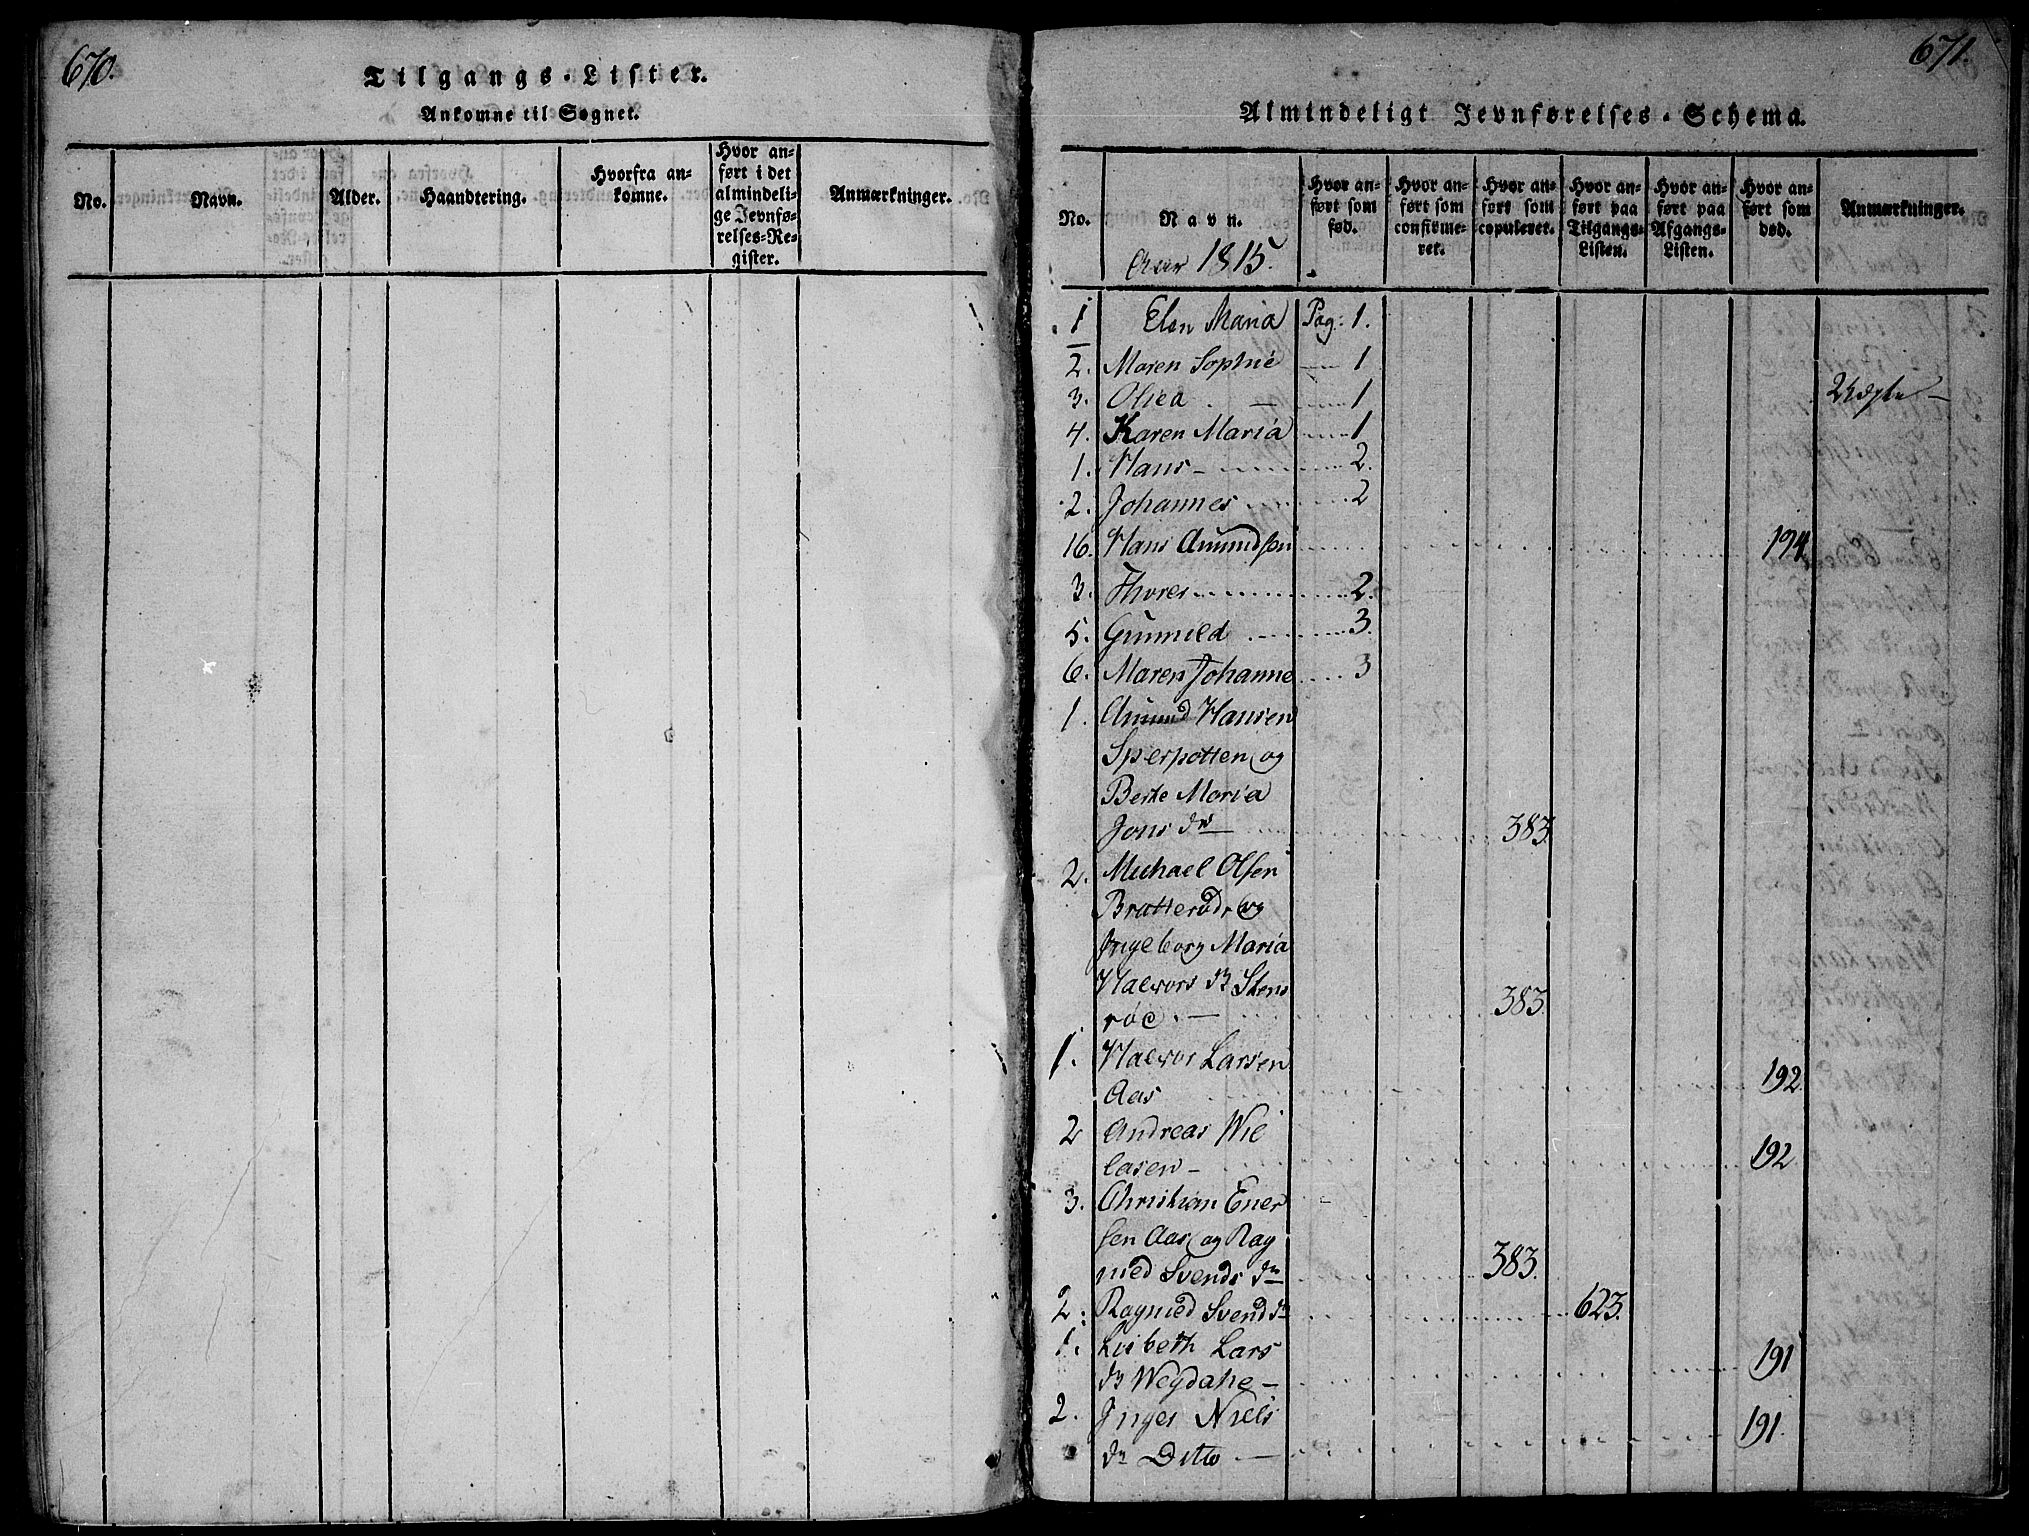 670.
Tilgangs-Lister.
Ankomne til Sognet.
No.
Navn.
Alder.
Haandtering.
Hvorfra an-
komne.
Hvor an-
ført i det
almindeli-
ge Jevnfø-
relses-Re-
gister.
Anmærkninger.
671.
Almindeligt Jevnførelses-Schema.
No.
Navn.
Hvor an-
ført som
fød.
Hvor an-
ført som
confirme-
ret.
Hvor an-
ført som
copuleret.
Hvor an-
ført paa
Tilgangs-
Listen.
Hvor an-
ført paa
Afgangs-
Listen.
Hvor an-
ført som
død.
Anmærkninger.
1815.
1 Elen Maria Pag: 1.
2. Maren Sophie 1
3. Olica 1
4. Karen Maria 1
1. Hans 2.
2. Johannes 2
16. Hans Amundsen 194
3. Thores 2.
5. Gunnild 3.
6. Maren Johanne 3
1. Amund Hansen
Sperpotten og
Berte Maria
Jons dr 383.
2. Michael Olsen
Bratterød og
Ingeborg Maria
Halvors dr Stens
rød. 383.
1. Halvor Larsen
Aas 192.
2 Andreas Nie
lasen 192
3. Christian Ener
sen Aas og Rag
nild Svends dr 383.
2. Ragnild Svends dr 623.
1. Lisbeth Lars
dr Wegdahl 191
2. Inger Niels
dr Ditto 191.